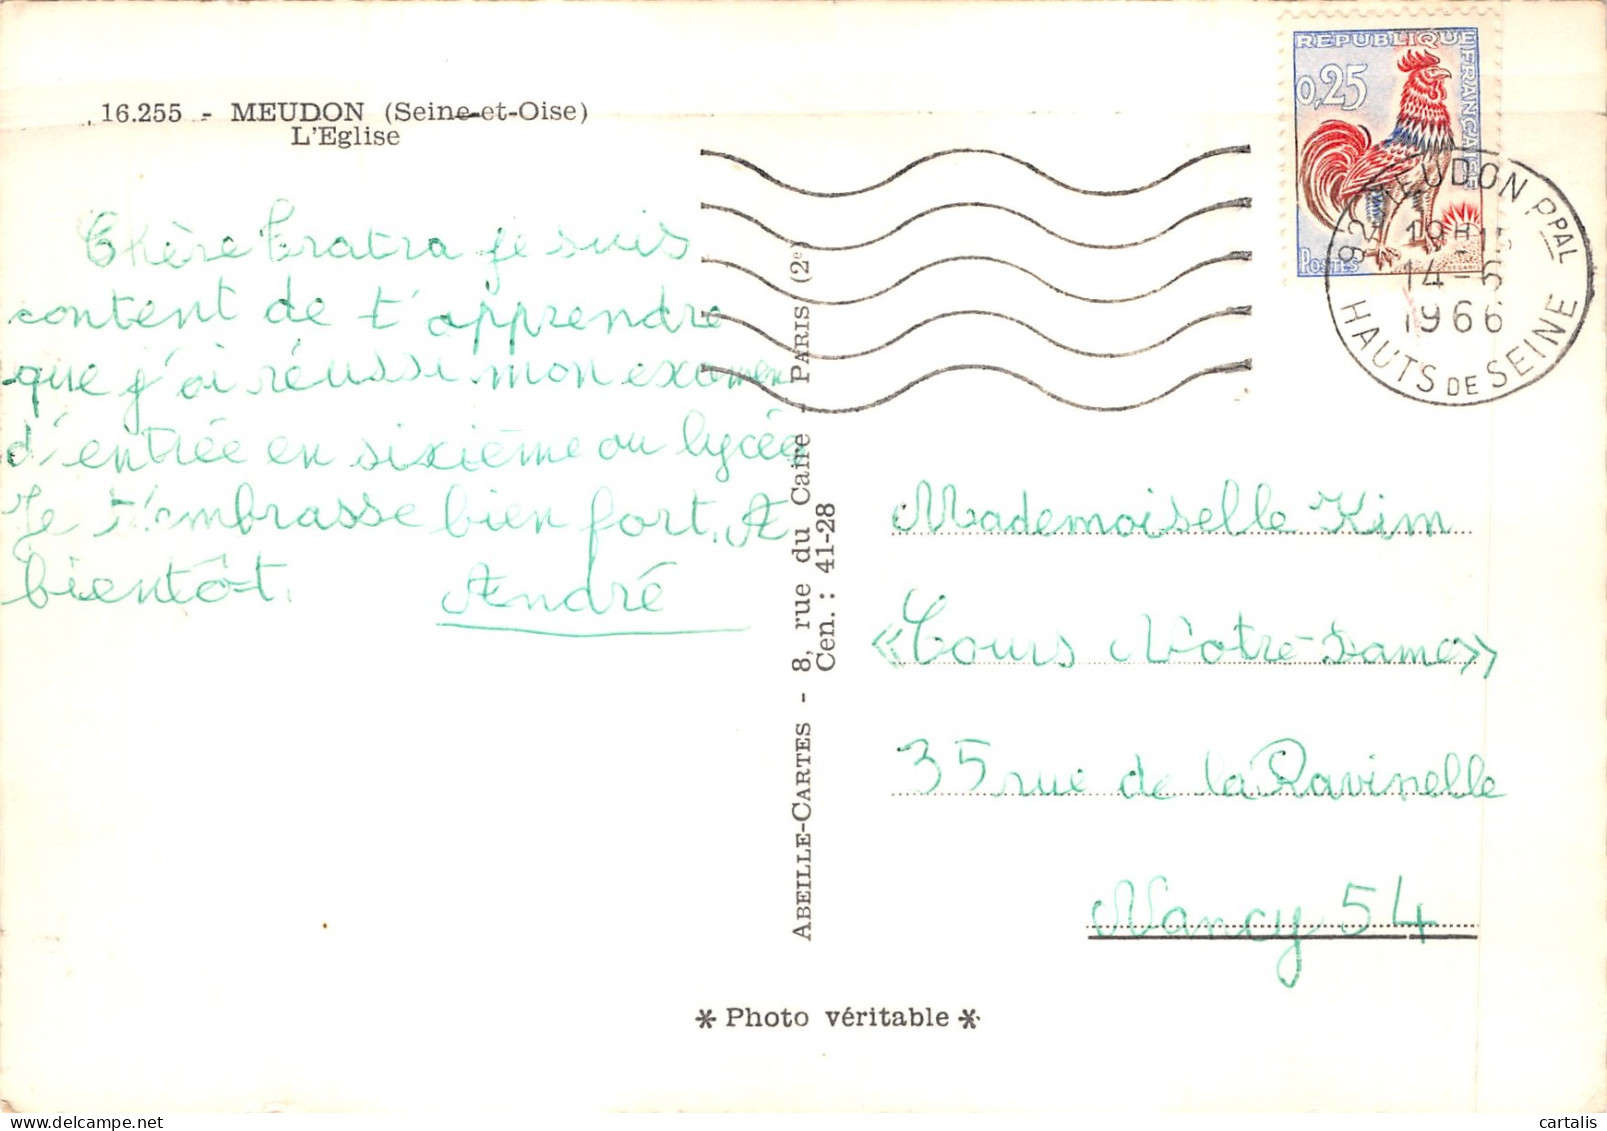 16.255 - MEUDON (Seine-et-Oise)
L'Eglise
Chère Tratra je suis
content de t'apprendre
que j'ai réussi mon examen
d'entrée en sixième au lycée
Je t'embrasse bien fort. A
bientôt. André
ABEILLE-CARTES - 8, rue du Caire - PARIS (2e)
Cen. : 41-28
REPUBLIQUE FRANÇAISE
0,25
POSTES
92 MEUDON PPAL
19H15
14-6
1966
HAUTS DE SEINE
Mademoiselle Kim
«Cours Notre-Dame»
35 rue de la Ravinelle
Nancy 54
* Photo véritable *
cartalis